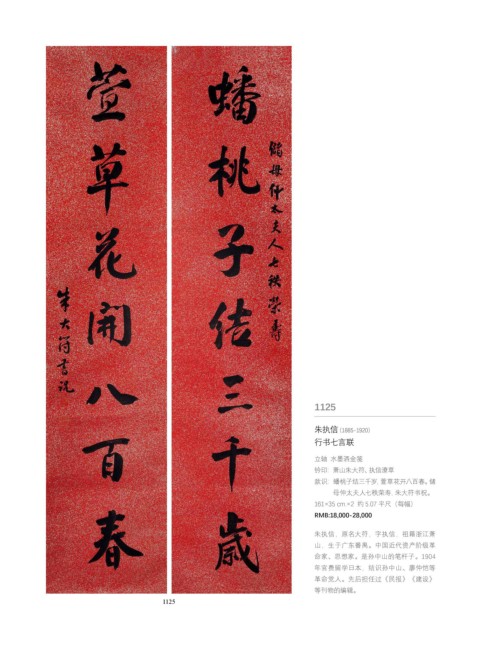 蟠桃子结三千歲
儲母仲太夫人七秩榮壽
萱草花開八百春
朱大符書祝
1125
1125
朱执信(1885-1920)
行书七言联
立轴 水墨洒金笺
钤印：萧山朱大符、执信漕草
款识：蟠桃子结三千岁，萱草花卉八百春。储
母仲太夫人七秩荣寿，朱大符书祝。
161×35 cm ×2 约 5.07 平尺（每幅）
RMB:18,000-28,000
朱执信，原名大符，字执信，祖籍浙江萧
山，生于广东番禺。中国近代资产阶级革
命家、思想家。是孙中山的笔杆子。1904
年官费留学日本，结识孙中山、廖仲恺等
革命党人。先后担任过《民报》《建设》
等刊物的编辑。